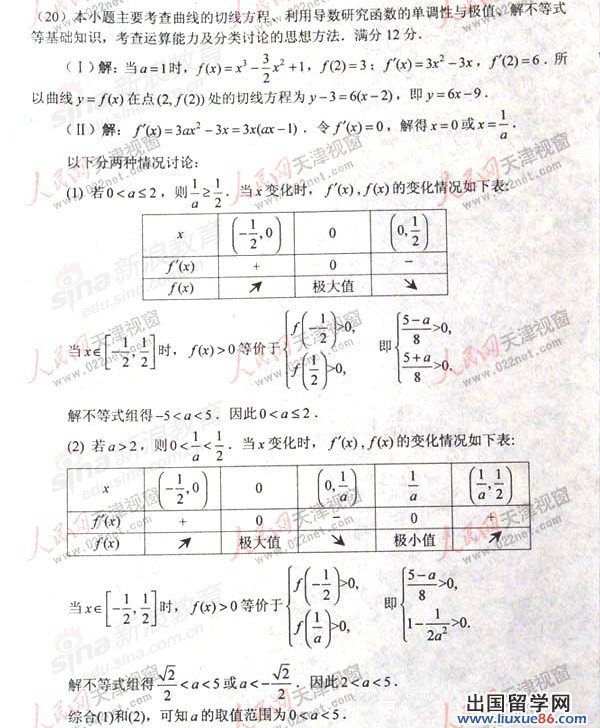 (20) 本小题主要考查曲线的切线方程、利用导数研究函数的单调性与极值、解不等式
等基础知识，考查运算能力及分类讨论的思想方法．满分 12 分．
(Ⅰ) 解：当 a=1 时，f(x)=x³−3/2x²+1，f(2)=3；f′(x)=3x²−3x，f′(2)=6．所
以曲线 y=f(x) 在点(2, f(2)) 处的切线方程为 y−3=6(x−2)，即 y=6x−9．
(Ⅱ) 解：f′(x)=3ax²−3x=3x(ax−1)．令 f′(x)=0，解得 x=0 或 x=1/a．
以下分两种情况讨论：
(1) 若 0<a≤2，则 1/a≥1/2．当 x 变化时，f′(x), f(x) 的变化情况如下表:
x (−1/2,0) 0 (0,1/2)
f′(x) + 0 −
f(x) ↗ 极大值 ↘
当 x∈[−1/2,1/2] 时，f(x)>0 等价于 { f(−1/2)>0, f(1/2)>0, 即 { (5−a)/8>0, (5+a)/8>0.
解不等式组得 −5<a<5．因此 0<a≤2．
(2) 若 a>2，则 0<1/a<1/2．当 x 变化时，f′(x), f(x) 的变化情况如下表:
x (−1/2,0) 0 (0,1/a) 1/a (1/a,1/2)
f′(x) + 0 0 +
f(x) ↗ 极大值 ↘ 极小值 ↗
当 x∈[−1/2,1/2] 时，f(x)>0 等价于 { f(−1/2)>0, f(1/a)>0, 即 { (5−a)/8>0, 1−1/(2a²)>0.
解不等式组得 √2/2<a<5 或 a<−√2/2．因此 2<a<5．
综合(1)和(2)，可知 a 的取值范围为 0<a<5．
人民网 天津视窗
www.022net.com
sina 新浪教育
edu.sina.com
出国留学网
www.liuxue86.com